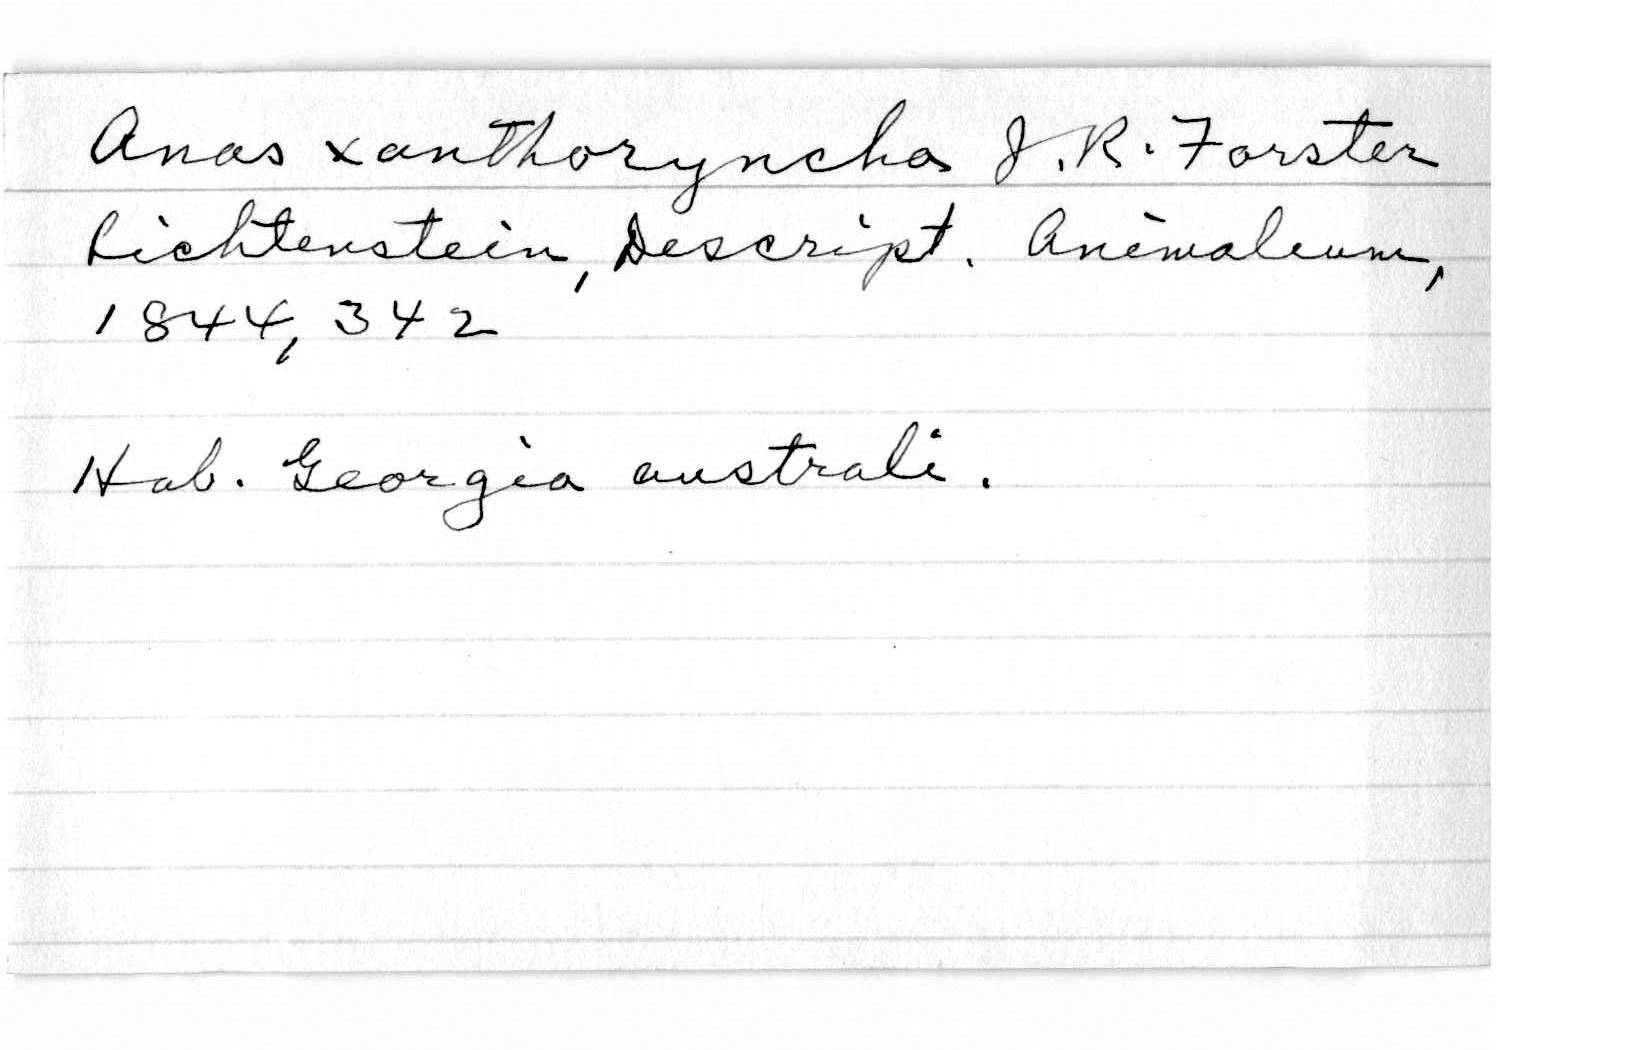 Anas xanthoryncha J.R. Forster
Lichtenstein, Descript. Animaleum,
1844, 342
Hab. Georgia australi.